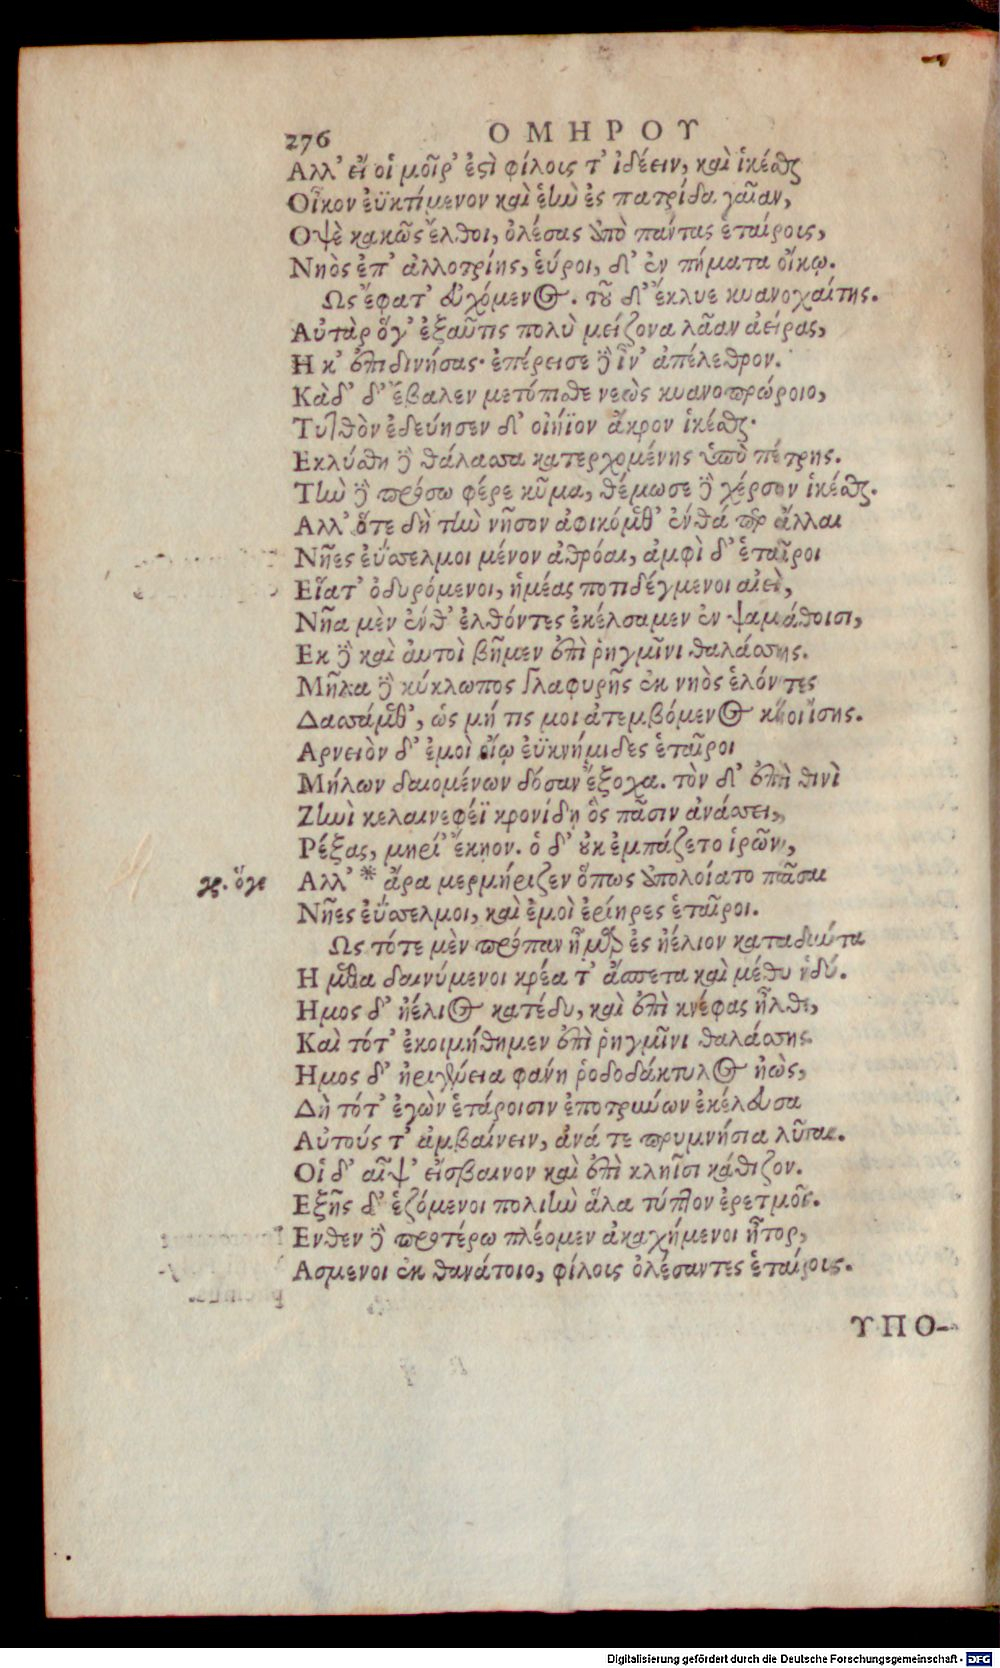 276 ΟΜΗΡΟΥ
Αλλ' εἴ οἱ μοῖρ' ἐστὶ φίλοις τ' ἰδέειν, καὶ ἱκέσθαι
Οἶκον ἐϋκτίμενον καὶ ἑὴν ἐς πατρίδα γαῖαν,
Οψὲ κακῶς ἔλθοι, ὀλέσας ἀπὸ πάντας ἑταίροις,
Νηὸς ἐπ' ἀλλοτρίης, εὕροι δ' ἐν πήματα οἴκῳ.
Ως ἔφατ' εὐχόμενος. τοῦ δ' ἔκλυε κυανοχαίτης.
Αὐτὰρ ὅγ' ἐξαῦτις πολὺ μείζονα λᾶαν ἀείρας,
Η κ' ἐπιδινήσας· ἐπέρεισε δὲ ἶν' ἀπέλεθρον.
Κὰδ' δ' ἔβαλεν μετόπισθε νεὼς κυανοπρώροιο,
Τυτθὸν ἐδεύησεν δ' οἰήϊον ἄκρον ἱκέσθαι·
Εκλύσθη δὲ θάλασσα κατερχομένης ὑπὸ πέτρης.
Τὴν δὲ πρόσω φέρε κῦμα, θέμωσε δὲ χέρσον ἱκέσθαι.
Αλλ' ὅτε δὴ τὴν νῆσον ἀφικόμεθ' ἔνθά περ ἄλλαι
Νῆες ἐΰσσελμοι μένον ἀθρόαι, ἀμφὶ δ' ἑταῖροι
Εἵατ' ὀδυρόμενοι, ἡμέας ποτιδέγμενοι αἰεὶ,
Νῆα μὲν ἔνθ' ἐλθόντες ἐκέλσαμεν ἐν ψαμάθοισι,
Εκ δὲ καὶ αὐτοὶ βῆμεν ἐπὶ ῥηγμῖνι θαλάσσης.
Μῆλα δὲ κύκλωπος γλαφυρῆς ἐκ νηὸς ἑλόντες
Δασσάμεθ', ὡς μή τις μοι ἀτεμβόμενος κίοι ἴσης.
Αρνειὸν δ' ἐμοὶ οἴῳ ἐϋκνήμιδες ἑταῖροι
Μήλων δαιομένων δόσαν ἔξοχα. τὸν δ' ἐπὶ θινὶ
Ζηνὶ κελαινεφέϊ κρονίδῃ ὃς πᾶσιν ἀνάσσει,
Ρέξας, μηρί' ἔκηον. ὁ δ' οὐκ ἐμπάζετο ἱρῶν,
γρ. ὅγε Αλλ' * ἄρα μερμήριζεν ὅπως ἀπολοίατο πᾶσαι
Νῆες ἐΰσσελμοι, καὶ ἐμοὶ ἐρίηρες ἑταῖροι.
Ως τότε μὲν πρόπαν ἦμαρ ἐς ἠέλιον καταδύντα
Ημεθα δαινύμενοι κρέα τ' ἄσπετα καὶ μέθυ ἡδύ.
Ημος δ' ἠέλιος κατέδυ, καὶ ἐπὶ κνέφας ἦλθε,
Καὶ τότ' ἐκοιμήθημεν ἐπὶ ῥηγμῖνι θαλάσσης.
Ημος δ' ἠριγένεια φάνη ῥοδοδάκτυλος ἠὼς,
Δὴ τότ' ἐγὼν ἑτάροισιν ἐποτρύνων ἐκέλευσα
Αὐτούς τ' ἀμβαίνειν, ἀνά τε πρυμνήσια λῦσαι.
Οἱ δ' αἶψ' εἴσβαινον καὶ ἐπὶ κληῖσι κάθιζον.
Εξῆς δ' ἑζόμενοι πολιὴν ἅλα τύπτον ἐρετμοῖς.
Ενθεν δὲ προτέρω πλέομεν ἀκαχήμενοι ἦτορ,
Ασμενοι ἐκ θανάτοιο, φίλοις ὀλέσαντες ἑταίροις.
ΥΠΟ-
Digitalisierung gefördert durch die Deutsche Forschungsgemeinschaft - DFG